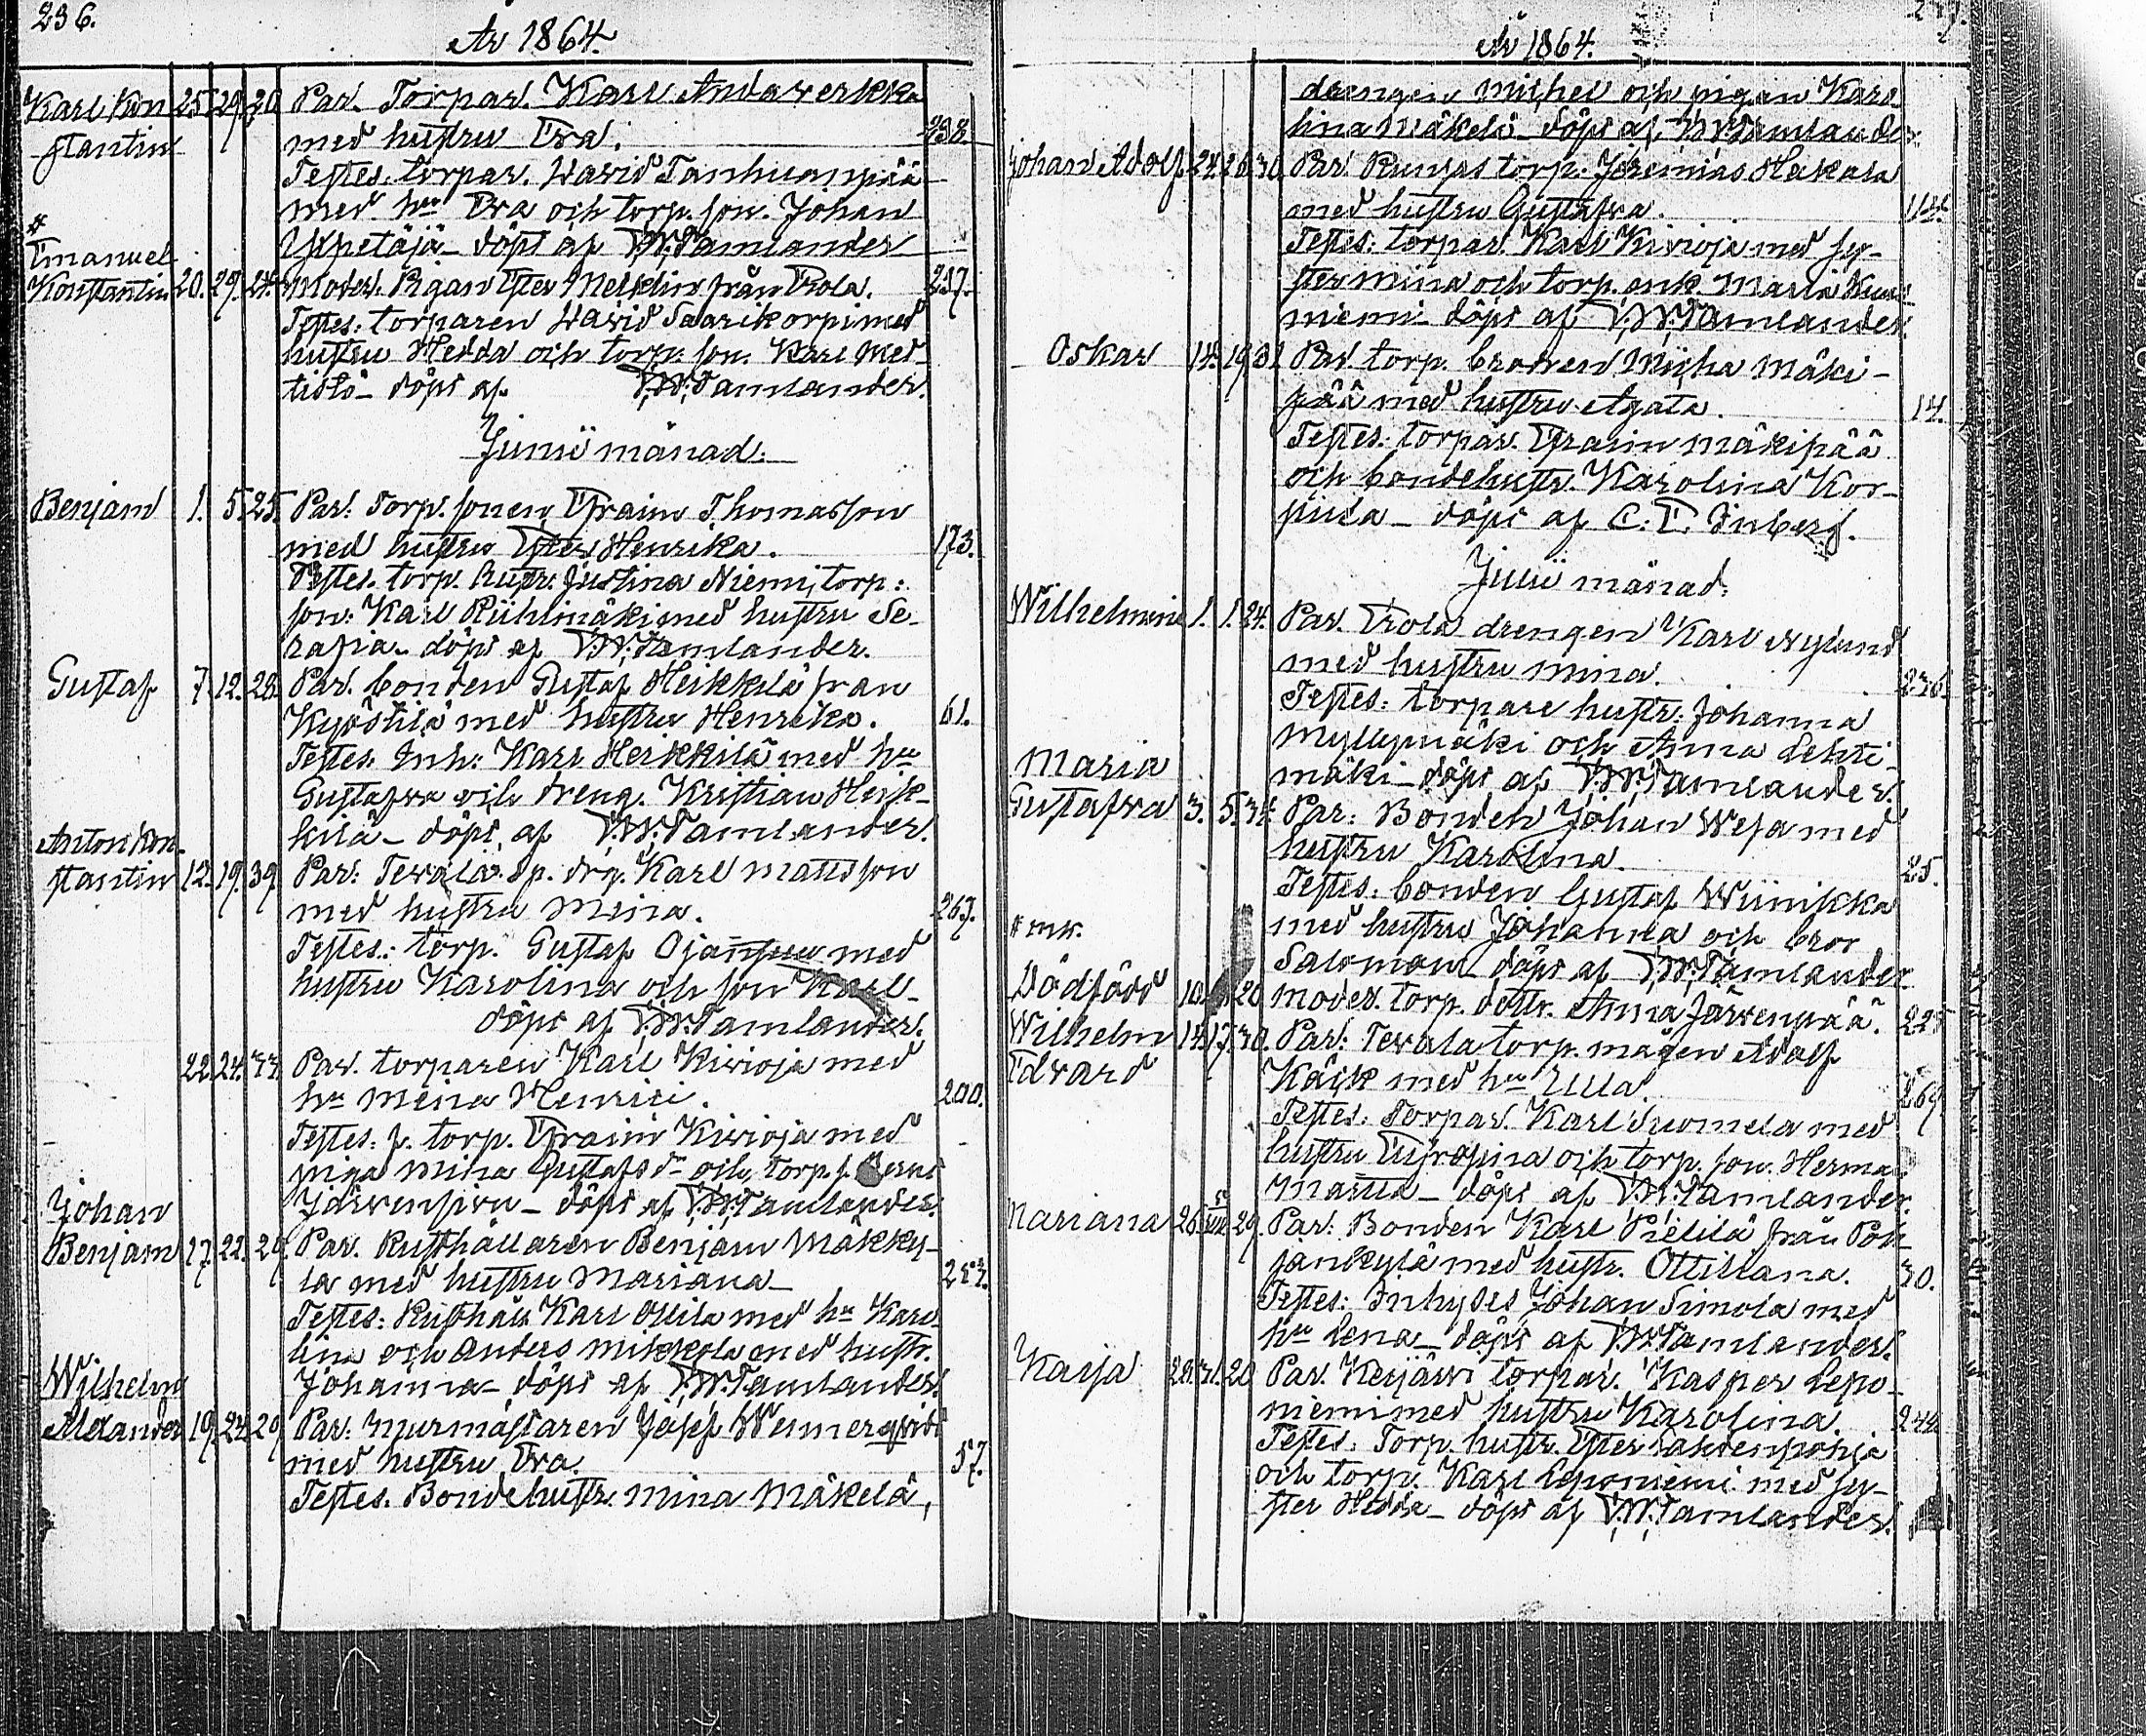 236.
År 1864.
Karl Kon 25. 29. 20. Par. Torpar. Karl Andaverkka
stantin med hustru Eva. 238.
Testes. torpar. David Tanhuanpää
med hu Eva och torp. son. Johan
Yypetäjä - döpt af F.W. Tamlander
#
Emanuel
Konstantin 20. 29. 24. Moder. Pigan Ester Melklin från Prola. 237.
Testes. torparen David Saarikorpi med
hustru Hedda och torp. son. Karl Met
tistö - döpt af F.W. Tamlander.
Junii månad.
Benjam 1. 5. 25. Par. Torp. sonen Efraim Thomasson
med hustru Ester Henrika. 173.
Testes. torp. hustr. Justina Niemi, torp:
son: Karl Riihimäki med hustru Se-
rafia - döpt af F.W. Tamlander.
Gustaf 7. 12. 28. Par. bonden Gustaf Heikkilä från
Kyöstilä med hustru Henrika. 61.
Testes. Inh: Karl Heikkilä med hu
Gustafva och dreng. Kristian Heik-
kilä - döpt af F.W. Tamlander.
Anton Kon-
stantin 12. 19. 39. Par: Tevala sp. drg. Karl Mattsson
med hustru Mina. 267.
Testes: torp. Gustaf Ojansuu med
hustru Karolina och son Karl -
döpt af F.W. Tamlander.
22. 24. 33. Par. torparen Karl Kivioja med
hu Mina Henrici. 200.
Testes: f. torp. Efraim Kivioja med
piga Mina Gustafsdr och torp. s.
Järvensivu - döpt af F.W. Tamlander.
Johan
Benjam 17. 22. 29. Par. Rusthållaren Benjam Mäkky-
lä med hustru Mariana 253.
Testes: Rusthåll Karl Ollila med hu Karo-
lina och Anders Mikkola med hustr.
Johanna - döpt af F.W. Tamlander.
Wilhelm
Alexander 19. 24. 29. Par: murmästaren Josef Wennerqvist
med hustru Eva. 57.
Testes. Bondehustr. Mina Mäkelä,
År 1864.
drengen Michel och pigan Karo
lina Mäkelä - döpt af F.W. Tamlander.
Johan Adolf 24. 26. 30. Par. Punjas torp. Jeremias Heikala
med hustru Gustafva. 114.
Testes: torpar. Karl Kivioja med sy-
ster Mina och torp. enk. Maria
niemi - döpt af F.W. Tamlander.
Oskar 14. 19. 31. Par. torp. brodren Micha Mäki-
pää med hustru Agata. 14.
Testes: torpar. Efraim Mäkipää
och bondehustr. Karolina Kor-
pula - döpt af C. E. Inberg.
Julii månad.
Wilhelmina 1. 1. 24. Par. Prola drengen Karl Nylund
med hustru Mina. 236.
Testes: torpare hustr: Johanna
Myllymäki och Anna Lehti-
mäki - döpt af F.W. Tamlander.
Maria
Gustafva 3. 5. 34. Par: Bonden Johan Wesa med
hustru Karolina. 25.
Testes: bonden Gustaf Wiinikka
# mk. med hustru Johanna och bror
Salomon - döpt af F.W. Tamlander
Dödfödd 10. 20. Moder. torp. dottr. Anna Järvenpää. 225.
Wilhelm 14. 17. 30. Par: Tevala torp. mågen Adolf
Edvard Käck med hu Ulla. 269.
Testes: Torpar. Karl Suomela med
hustru Eufrosina och torp. son. Herman
Marttila - döpt af F.W. Tamlander.
Mariana 26. 29. Par: Bonden Karl Pietilä från Poh-
jankylä med hustr. Ottiliana. 30.
Testes: Inhyses Johan Simola med
hu Lena - döpt af F.W. Tamlander.
Kaija 28. 31. 20. Par. Keijärvi torpar. Kasper Lepo-
niemi med hustru Karolina. 244.
Testes: Torp. hustr. Ester Lahdenpohja
och torp. Karl Leponiemi med sy-
ster Hedda - döpt af F.W. Tamlander.